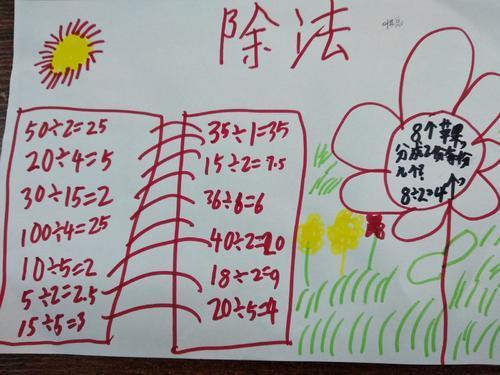 除法
50÷2=25
20÷4=5
30÷15=2
100÷4=25
10÷5=2
5÷2=2.5
15÷5=3
35÷1=35
15÷2=7.5
36÷6=6
40÷2=20
18÷2=9
20÷5=4
8个苹果,
分成2份每份
几个?
8÷2=4个